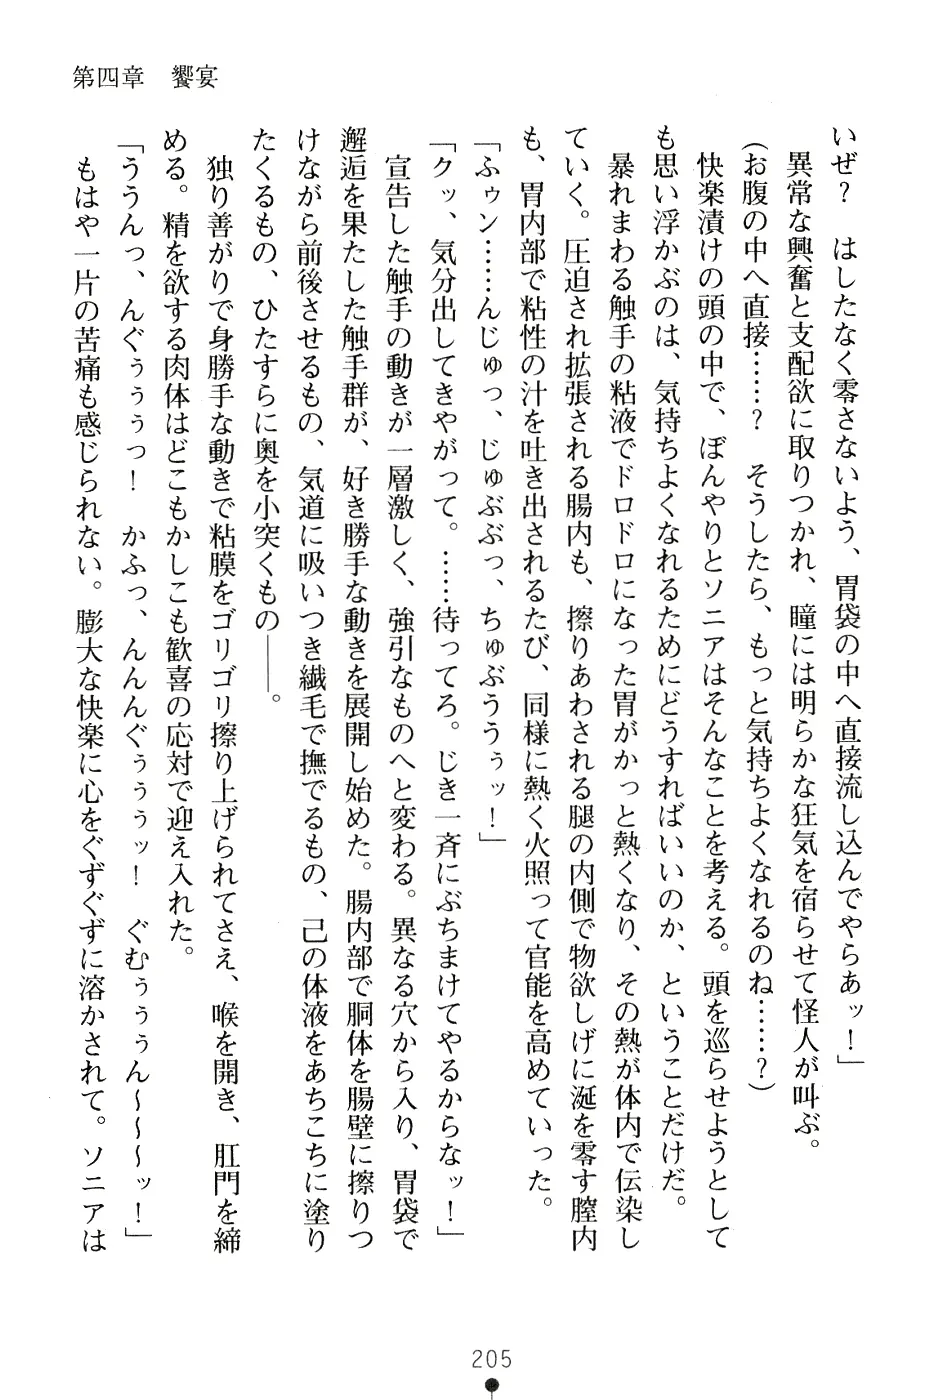 第四章　饗宴
いぜ？　はしたなく零さないよう、胃袋の中へ直接流し込んでやらあッ！」
　異常な興奮と支配欲に取りつかれ、瞳には明らかな狂気を宿らせて怪人が叫ぶ。
（お腹の中へ直接……？　そうしたら、もっと気持ちよくなれるのね……？）
　快楽漬けの頭の中で、ぼんやりとソニアはそんなことを考える。頭を巡らせようとして
も思い浮かぶのは、気持ちよくなれるためにどうすればいいのか、ということだけだ。
　暴れまわる触手の粘液でドロドロになった胃がかっと熱くなり、その熱が体内で伝染し
ていく。圧迫され拡張される腸内も、擦りあわされる腿の内側で物欲しげに涎を零す膣内
も、胃内部で粘性の汁を吐き出されるたび、同様に熱く火照って官能を高めていった。
「ふゥン……んじゅっ、じゅぶぶっ、ちゅぶううぅッ！」
「クッ、気分出してきやがって。……待ってろ。じき一斉にぶちまけてやるからなッ！」
　宣告した触手の動きが一層激しく、強引なものへと変わる。異なる穴から入り、胃袋で
邂逅を果たした触手群が、好き勝手な動きを展開し始めた。腸内部で胴体を腸壁に擦りつ
けながら前後させるもの、気道に吸いつき繊毛で撫でるもの、己の体液をあちこちに塗り
たくるもの、ひたすらに奥を小突くもの――。
　独り善がりで身勝手な動きで粘膜をゴリゴリ擦り上げられてさえ、喉を開き、肛門を締
める。精を欲する肉体はどこもかしこも歓喜の応対で迎え入れた。
「ううんっ、んぐぅぅぅっ！　かふっ、んんんぐぅぅぅッ！　ぐむぅぅぅん～～～ッ！」
　もはや一片の苦痛も感じられない。膨大な快楽に心をぐずぐずに溶かされて。ソニアは
205